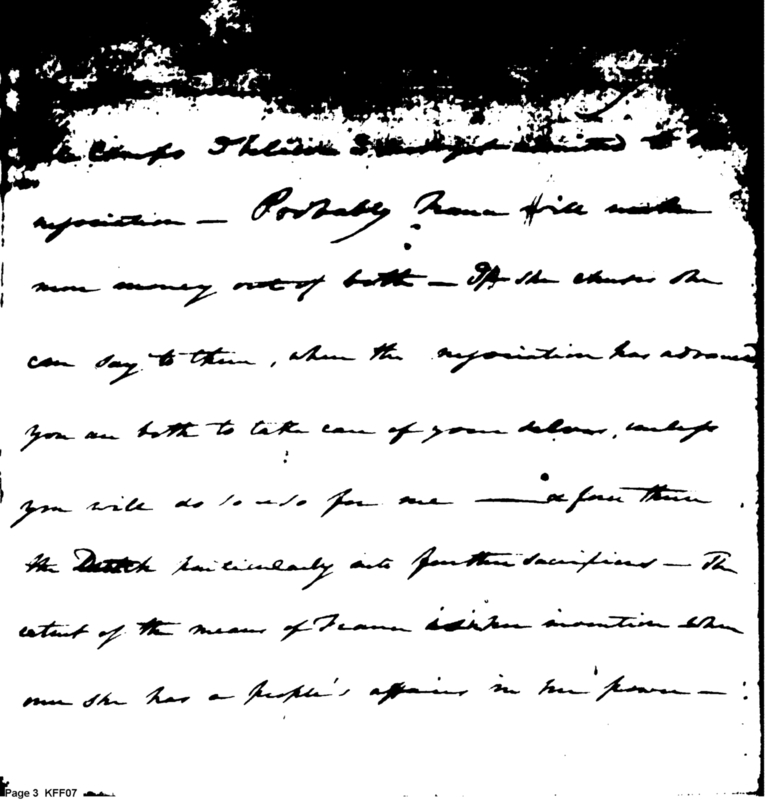 Camps I believe admitted to
negociation — Probably France will make
more money out of both — If she chuses she
can say to them, when the negociation has advanced
you are both to take care of your selves, unless
you will do so & so for me — & force them
the Dutch particularly into further sacrifices — The
extent of the means of France invention when
once she has a people's affairs in her power —
Page 3 KFF07